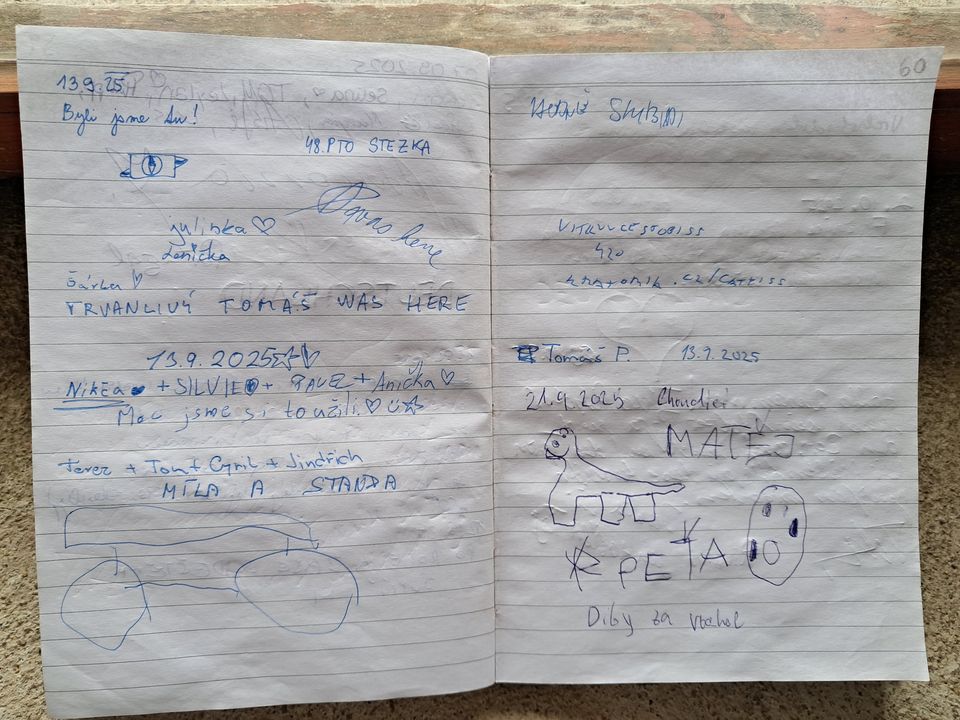 13.9.25
Byli jsme tu!
48.PTO STEZKA
julinka ♡
was here
Lenička
Šárka ♡
TRVANLIVÝ TOMÁŠ WAS HERE
13.9.2025
Nikča + SILVIE + PAVEL + Anička ♡
Moc jsme si to užili ♡
Terez + Tom + Cyril + Jindřich
MÍLA A STANDA
60
420
Tomáš P. 13.9.2025
21.9.2025
MATĚJ
PEŤA
Diky za